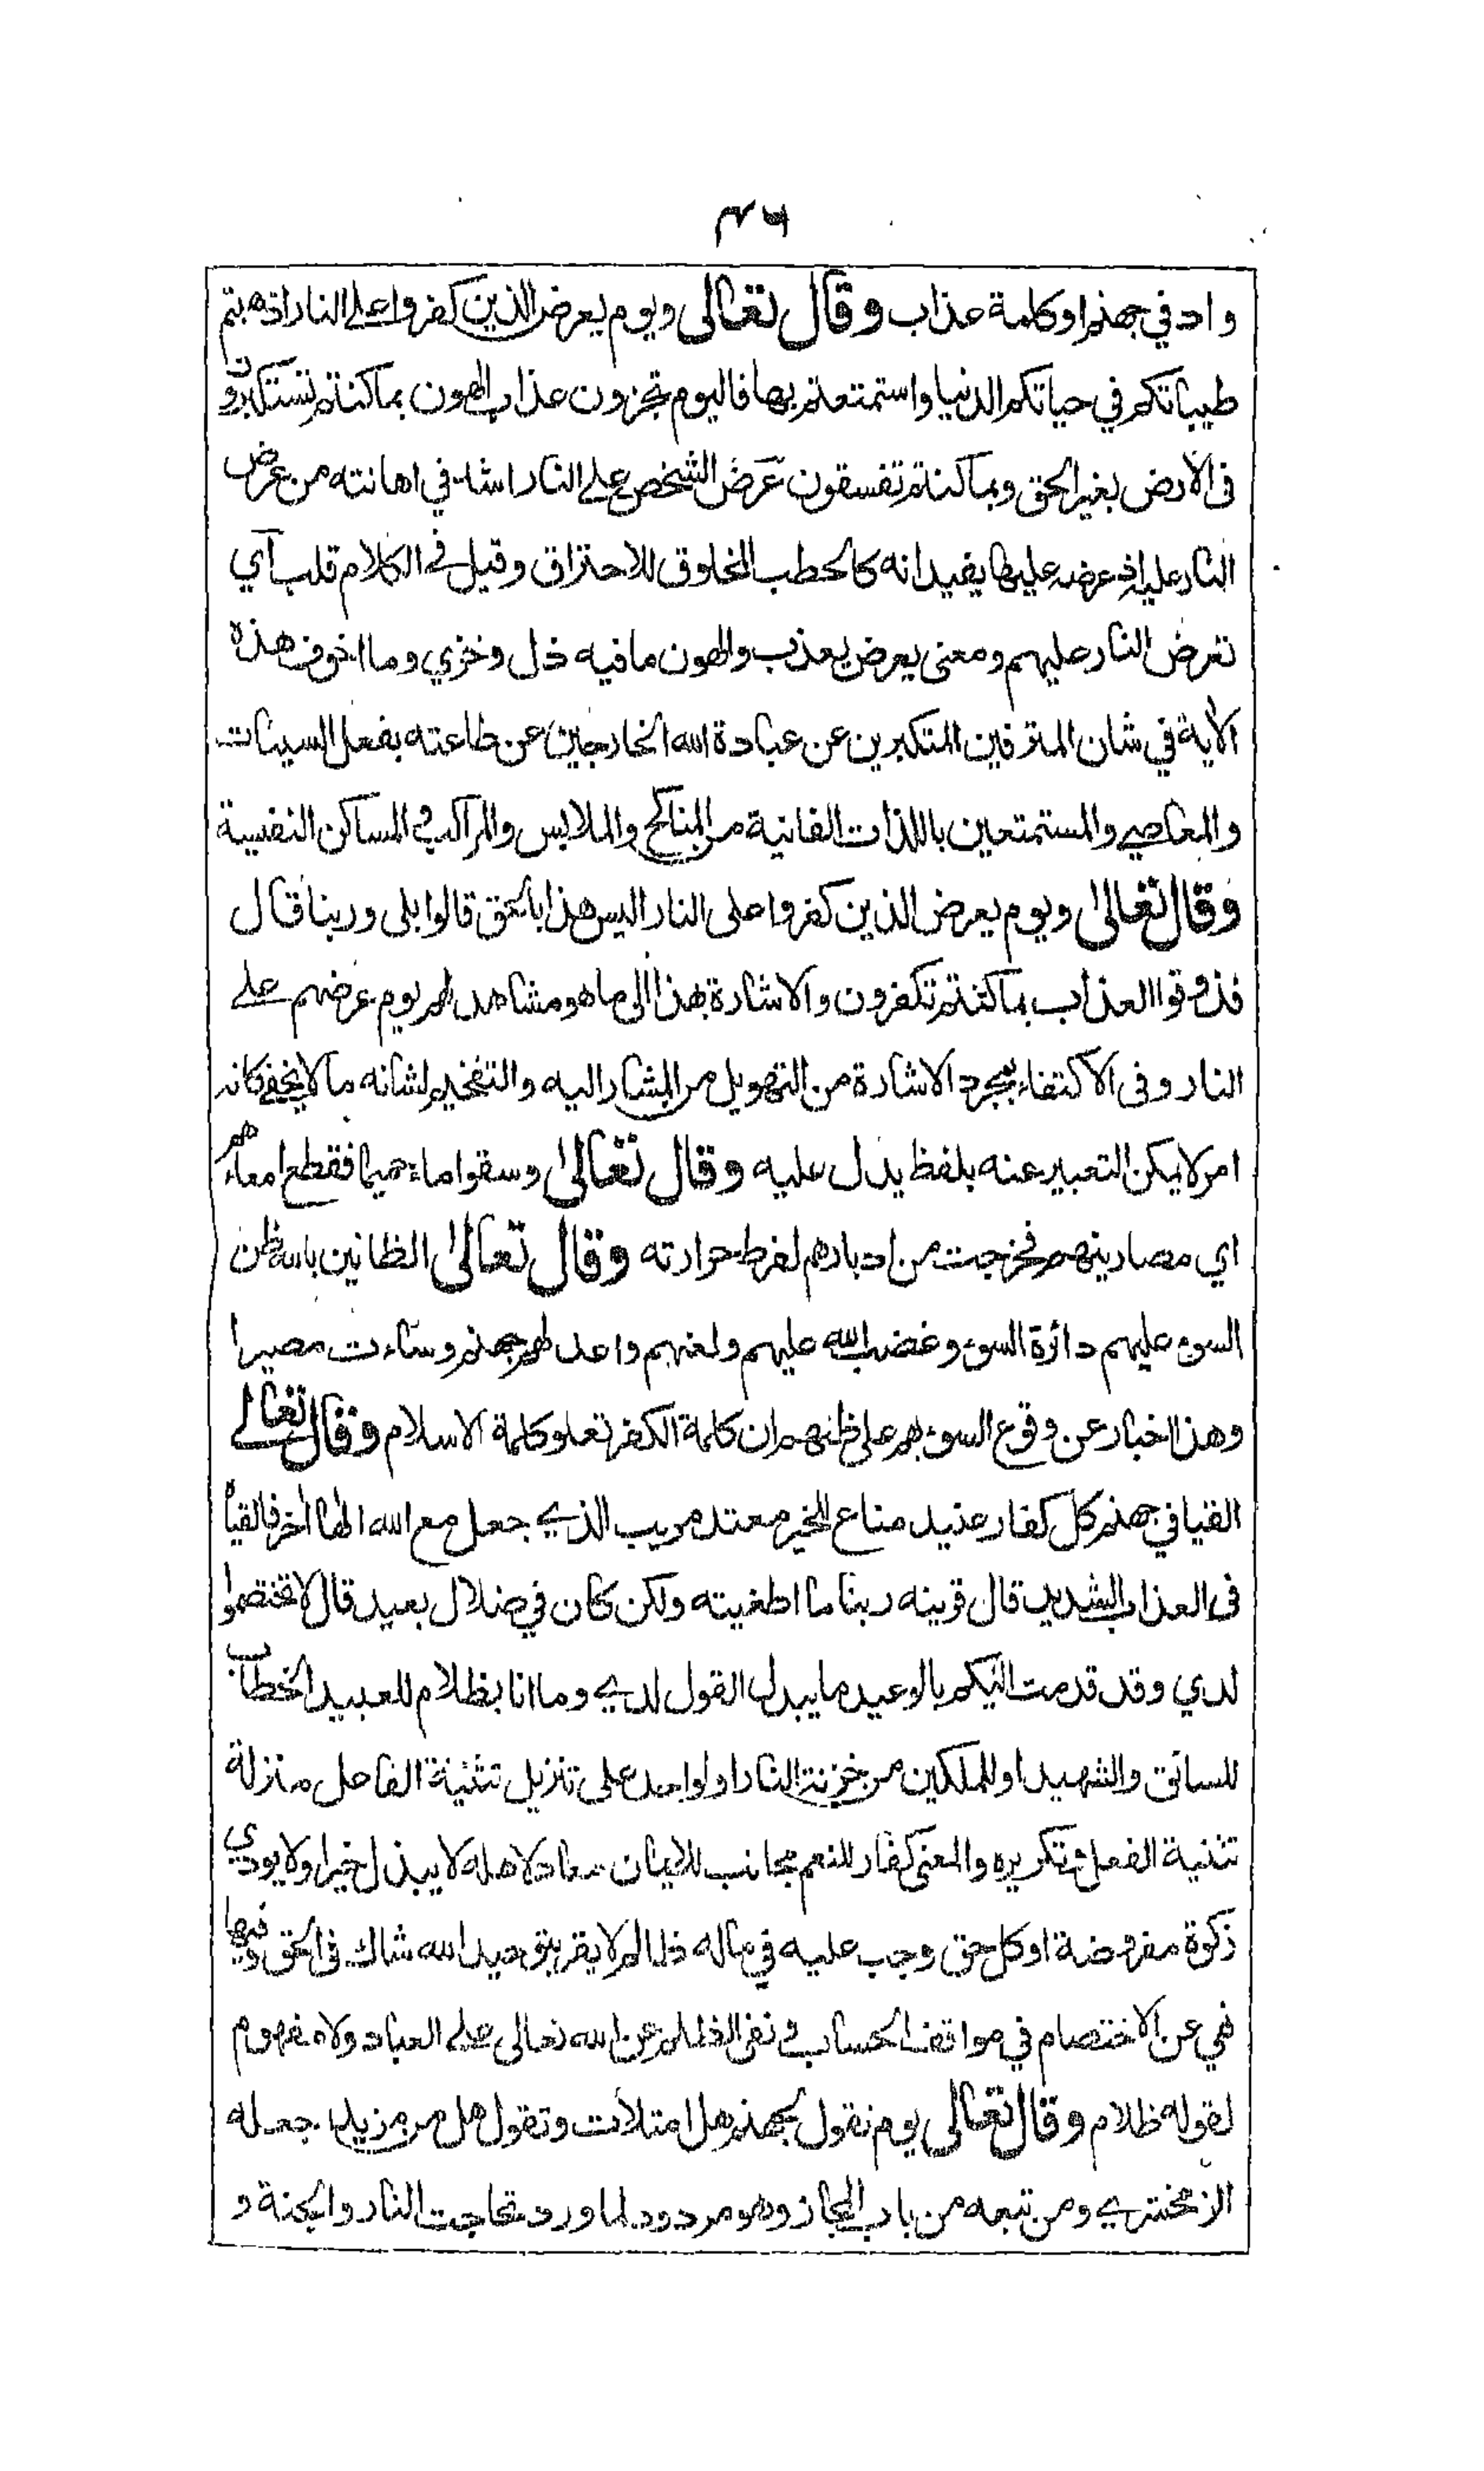 ٤٦
واد في جهنم او كلمة عذاب وقال تعالى ويوم يعرض الذين كفروا على النار اذهبتم
طيباتكم في حياتكم الدنيا واستمتعتم بها فاليوم تجزون عذاب الهون بما كنتم تستكبرون
فى الأرض بغير الحق وبما كنتم تفسقون عَرضُ الشخص على النار اشد في اهانته من عرض
النار عليه اذ عرضه عليها يفيد انه كالحطب المخلوق للاحتراق وقيل في الكلام قلب آي
تعرض النار عليهم ومعنى يعرض يعذب والهون ما فيه ذل وخزي وما اخوف هذه
الآية في شان المترفين المتكبرين عن عبادة الله الخارجين عن طاعته بفعل السيئات
والمعاصي والمستمتعين باللذات الفانية من المناكح والملابس والمراكب في المساكن النفسية
وقال تعالى ويوم يعرض الذين كفروا على النار اليس هذا بالحق قالوا بلى وربنا قال
فذوقوا العذاب بما كنتم تكفرون والاشارة بهذا الى ما هو مشاهد لهم يوم عرضهم على
النار وفى الاكتفاء بمجرد الاشارة من التهويل من المشار اليه والتفخيم لشانه ما لا يخفى كانه
امر لا يمكن التعبير عنه بلفظ يدل عليه وقال تعالى وسقوا ماء حميما فقطع امعاءهم
اي مصارينهم فخرجت من ادبارهم لفرط حرارته وقال تعالى الظانين بالله ظن
السوء عليهم دائرة السوء وغضب الله عليهم ولعنهم واعد لهم جهنم وساءت مصيرا
وهذا اخبار عن وقوع السوء بهم على ظنهم ان كلمة الكفر تعلو كلمة الاسلام وقال تعالى
القيا في جهنم كل كفار عنيد مناع للخير معتد مريب الذي جعل مع الله الها آخر فالقياه
فى العذاب الشديد قال قرينه ربنا ما اطغيته ولكن كان في ضلال بعيد قال لا تختصموا
لدي وقد قدمت اليكم بالوعيد ما يبدل القول لدي وما انا بظلام للعبيد الخطاب
للسائق والشهيد او للملكين من خزنة النار او لواحد على تنزيل تثنية الفاعل منزلة
تثنية الفعل وتكريره والمعنى كفار للنعم مجانب للايمان معاد لاهله لا يبذل خيرا ولا يودي
زكوة مفروضة او كل حق وجب عليه في ماله ظالم لا يقر بتوحيد الله شاك فى الحق وفيها
نهي عن الاختصام في مواقف الحساب ونفى الظلم عن الله تعالى على العباد ولا مفهوم
لقوله ظلام وقال تعالى يوم نقول لجهنم هل امتلأت وتقول هل من مزيد جعله
الزمخشري ومن تبعه من باب المجاز وهو مردود لما ورد تحاجت النار والجنة و